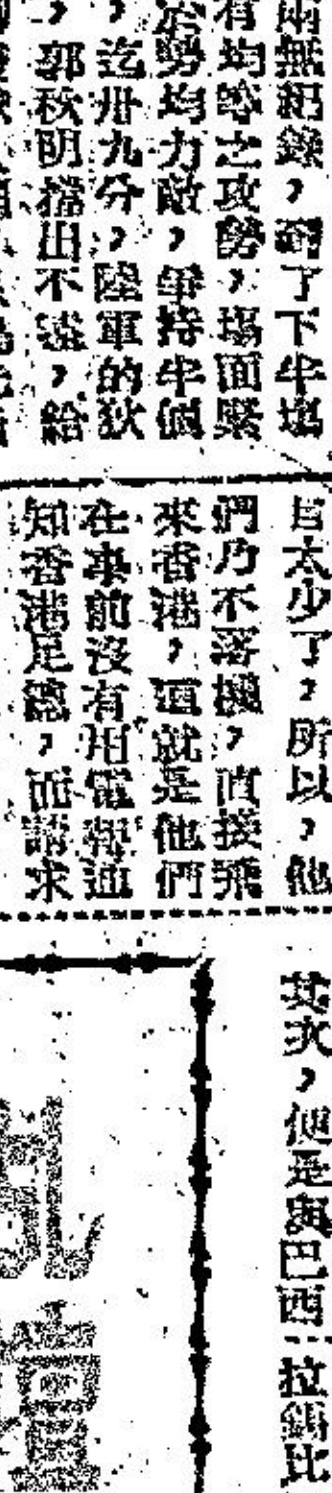 兩無紀錄，到了下半塲
有均等之攻勢，塲面緊
於勢均力敵，爭持半個
，迄卅九分，陸軍的狄
，郭秋明擋出不遠，給
目太少了，所以，他
們乃不落機，直接飛
來香港，這就是他們
在事前沒有用電報通
知香港足總，而請求
其次，便是與巴西
拉錫比